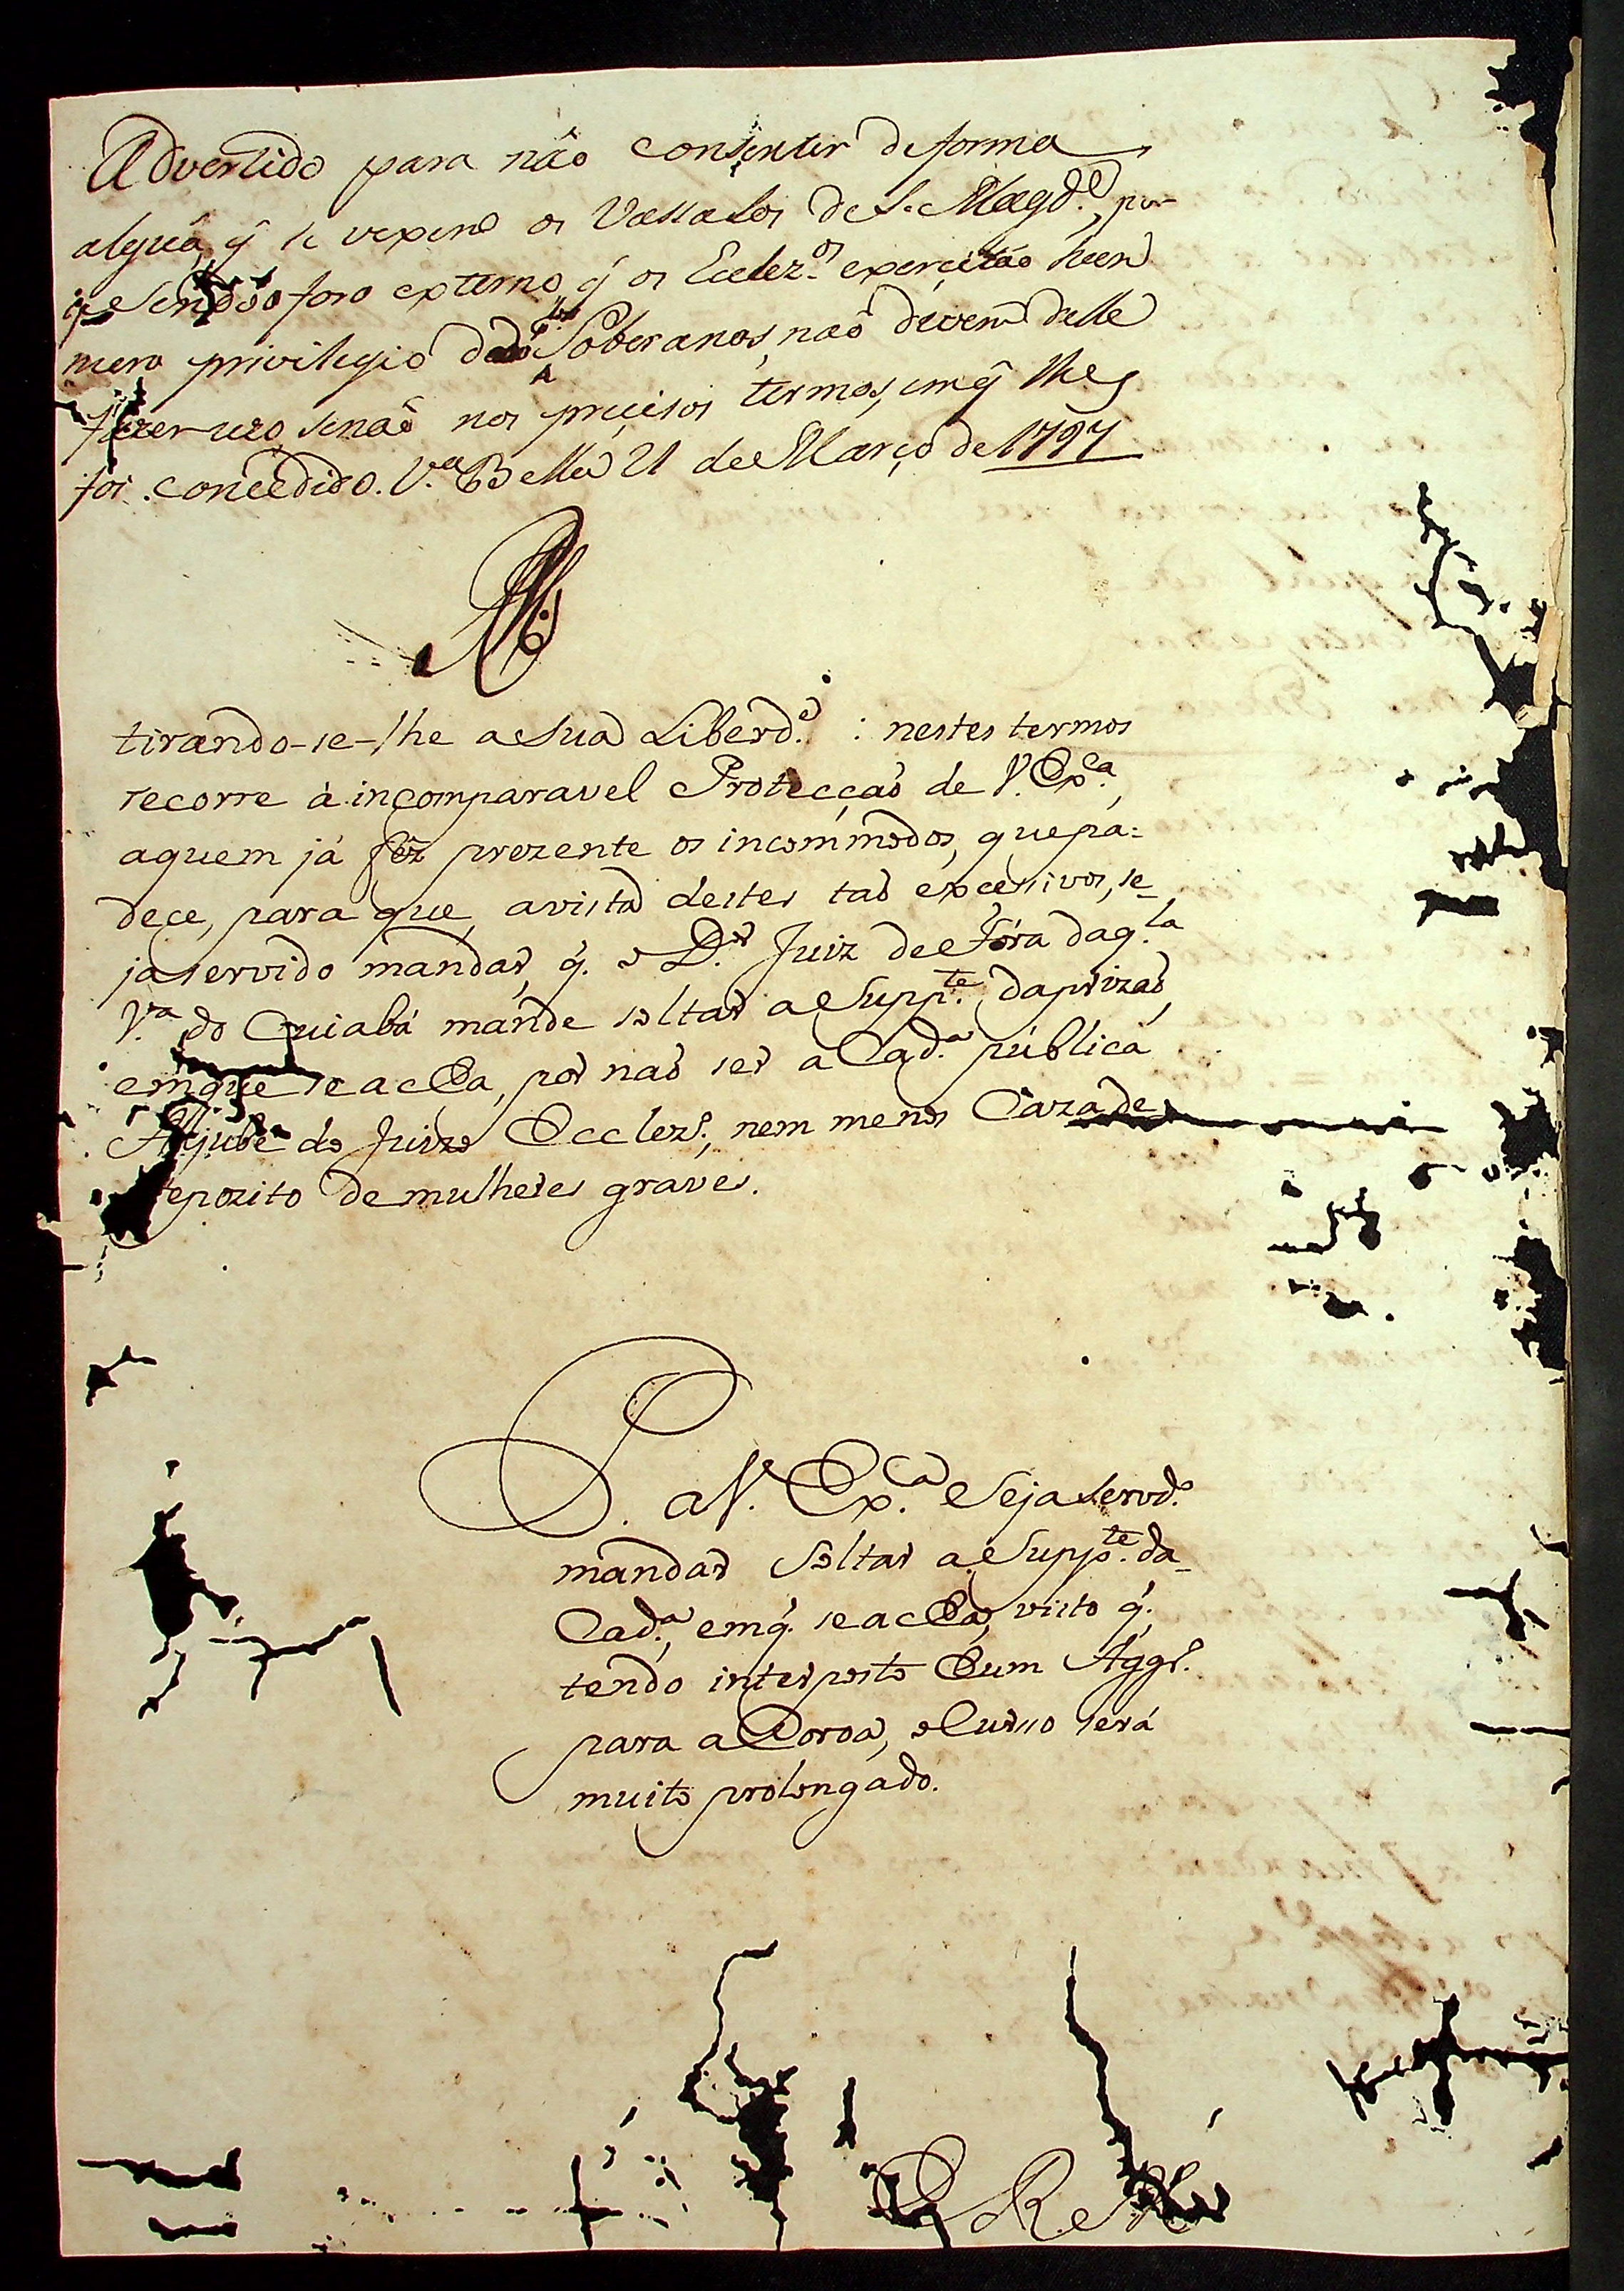 Advertido para não consentir de forma
algũa, q̃ se vexem os Vassalos de S. Magd.e, por-
q̃ sendo o foro externo, q̃ os Eclez.os exercitão hum
mero privilegio dos Soberanos, não devem delle
fazer uzo, senão nos precisos termos, em q̃ lhes
foi concedido. V.a Bella 21 de Março de 1797
tirando-se-lhe a sua Liberd.e : nestes termos
recorre á incomparavel Protecçaõ de V. Ex.ca,
aquem já fez prezente os incommodos, que pa=
dece, para que, avista destes taõ excessivos, se_
ja servido mandar, q̃. o D.or Juiz de Fóra daq.la
V.a do Cuiabá mande soltar a Supp.te da prizaõ,
em que se acha, por naõ ser a Cad.a pública
Aljube do Juizo Ecclez.o, nem menos Caza de
depozito de mulheres graves.
P. a V. Ex.ca Seja Servd.o
mandar Soltar a Supp.te da_
Cad.a, em q̃. se acha, visto q̃.
tendo interposto hum Aggr.o
para a Coroa, o Curso será
muito prolongado.
E R M